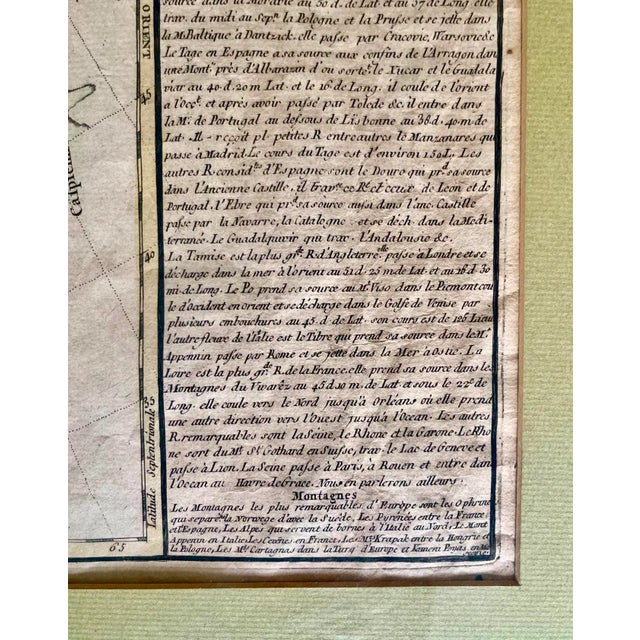 source dans la Moravie au 50 d. de Lat et au 37 d. de Long elle
trav. du midi au Sepn. la Pologne et la Prusse et se jette dans
la M. Baltique à Dantzack, elle passe par Cracovie, Warsovie &c
Le Tage en Espagne a sa source aux confins de l'Arragon dan
une Montn. près d'Albarazin d'ou sorte.t le Xucar et le Guadala
viar au 40. d. 20 m Lat. et le 16 d. de Long. il coule de l'orient
à l'occt. et après avoir passé par Tolede &c. il entre dans
la M. de Portugal au dessous de Lisbonne au 38 d. 40 m de
Lat. Il reçoit pl. petites R entre autres le Manzanares qui
passe à Madrid. Le cours du Tage est d'environ 150 L. Les
autres R. considles d'Espagne sont le Douro qui prd. sa source
dans l'Ancienne Castille, il trave. ce R. et ceux de Leon et de
Portugal, l'Ebre qui prd. sa source aussi dans l'anc. Castille
passe par la Navarre, la Catalogne et se dech. dans la Medi-
terranée. Le Guadalquivir qui trav. l'Andalousie &c.
La Tamise est la plus gr. R. d'Angleterre elle passe à Londre et se
décharge dans la mer à l'orient au 51 d. 25 m de Lat. et au 18 d. 30
mi. de Long. Le Po prend sa source au Mt. Viso dans le Piemont cou
le d'occident en orient et se décharge dans le Golfe de Venise par
plusieurs embouchures au 45. d. de Lat. son cours est de 126 Lieu
l'autre fleuve de l'Italie est le Tibre qui prend sa source dans le Mt.
Appennin passe par Rome et se jette dans la Mer à Ostie. La
Loire est la plus grde. R. de la France. elle prend sa source dans les
Montagnes du Vivaréz au 45 d 10 m. de Lat. et sous le 22 d. de
Long. elle coule vers le Nord jusqu'à Orléans où elle prend
une autre direction vers l'Ouest jusqu'à l'Ocean. Les autres
R. remarquables sont la Seine, le Rhone et la Garone. Le Rho
ne sort du Mt. St. Gothard en Suisse, trav. le Lac de Geneve et
passe à Lion. La Seine passe à Paris, à Rouen et entre dans
l'Ocean au Havre de Grace. Nous en parlerons ailleurs.
Montagnes
Les Montagnes les plus remarquables d'Europe sont les Ophrines
qui separe.t la Norwege d'avec la Suède, Les Pyrénées entre la France
et l'Espagne, Les Alpes qui servent de bornes à l'Italie au Nord, Le Mont
Appenin en Italie, Les Cevénes en France, Les Mts. Krapak entre la Hongrie et
la Pologne, Les Mts. Cartagnas dans la Turq. d'Europe et Kameni Poyas en
ORIENT
45
Caspien
40
35
Latitude Septentrionale
65